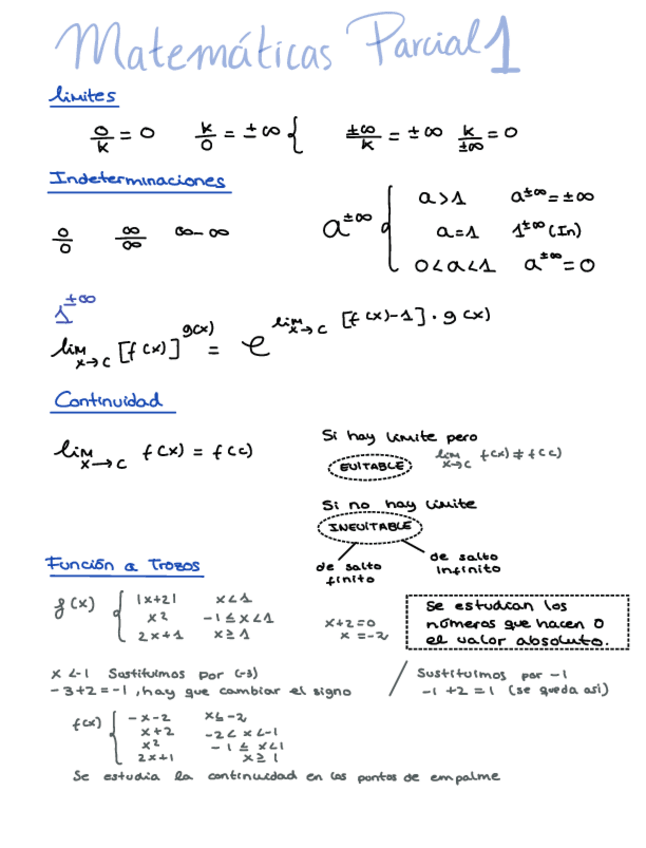 Matemáticas Parcial 1
límites
0/k = 0   k/0 = ±∞ {   ±∞/k = ±∞   k/±∞ = 0
Indeterminaciones
0/0   ∞/∞   ∞-∞
a^±∞ {
a>1   a^±∞ = ±∞
a=1   1^±∞ (In)
0<a<1   a^±∞ = 0
1^±∞
lim x→c [f(x)]^g(x) = e^lim x→c [f(x)-1]·g(x)
Continuidad
lim x→c f(x) = f(c)
Si hay límite pero
EVITABLE   lim x→c f(x) ≠ f(c)
Si no hay límite
INEVITABLE
de salto finito
de salto infinito
Función a Trozos
f(x) {
|x+2|   x<1
x²   -1≤x<1
2x+1   x≥1
x+2=0
x=-2
Se estudian los
números que hacen 0
el valor absoluto.
x<-1 Sustituimos por (-3)
-3+2=-1, hay que cambiar el signo
/ Sustituimos por -1
-1+2=1 (se queda así)
f(x) {
-x-2   x≤-2
x+2   -2<x<-1
x²   -1≤x<1
2x+1   x≥1
Se estudia la continuidad en los puntos de empalme